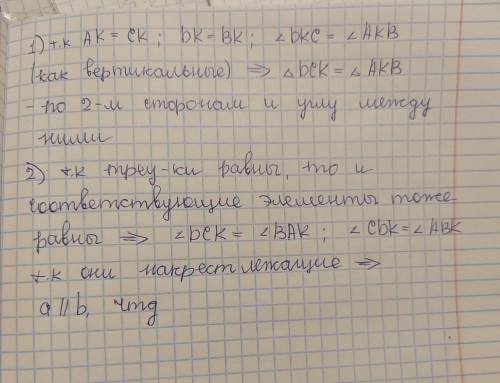 1) т.к AK = CK; DK = BK; ∠DKC = ∠AKB
(как вертикальные) ⇒ △DCK = △AKB
- по 2-м сторонам и углу между
ними
2) т.к треу-ки равны, то и
соответствующие элементы тоже
равны ⇒ ∠DCK = ∠BAK; ∠CDK = ∠ABK
т.к они накрест лежащие ⇒
a // b, чтд